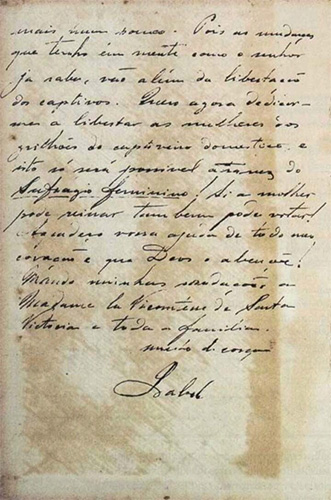 mais num pouco. Pois as mudanças
que tenho em mente como o senhor
já sabe, vão além da libertação
dos captivos. Quero agora dedicar-
me a libertar as mulheres dos
grilhões do captiveiro domestico, e
isto só será possivel atravez do
Sufragio feminino! Si a mulher
pode reinar tambem pode votar!
Agradeço vossa ajuda de todo meu
coração e que Deos o abençoe!
Mando minhas saudações a
Madame la Vicomtesse de Santa
Victoria e toda a familia.
muito de coração
Isabel